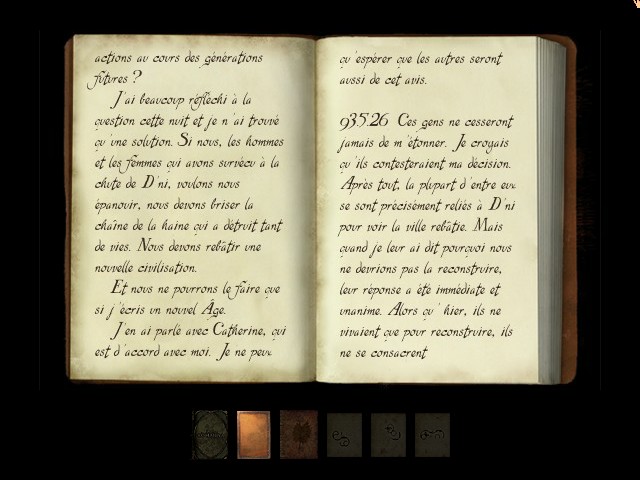 actions au cours des générations
futures ?
J'ai beaucoup réfléchi à la
question cette nuit et je n'ai trouvé
qu'une solution. Si nous, les hommes
et les femmes qui avons survécu à la
chute de D'ni, voulons nous
épanouir, nous devons briser la
chaîne de la haine qui a détruit tant
de vies. Nous devons rebâtir une
nouvelle civilisation.
Et nous ne pourrons le faire que
si j'écris un nouvel Âge.
J'en ai parlé avec Catherine, qui
est d'accord avec moi. Je ne peux
qu'espérer que les autres seront
aussi de cet avis.
93.5.26 Ces gens ne cesseront
jamais de m'étonner. Je croyais
qu'ils contesteraient ma décision.
Après tout, la plupart d'entre eux
se sont précisément reliés à D'ni
pour voir la ville rebâtie. Mais
quand je leur ai dit pourquoi nous
ne devrions pas la reconstruire,
leur réponse a été immédiate et
unanime. Alors qu'hier, ils ne
vivaient que pour reconstruire, ils
ne se consacrent